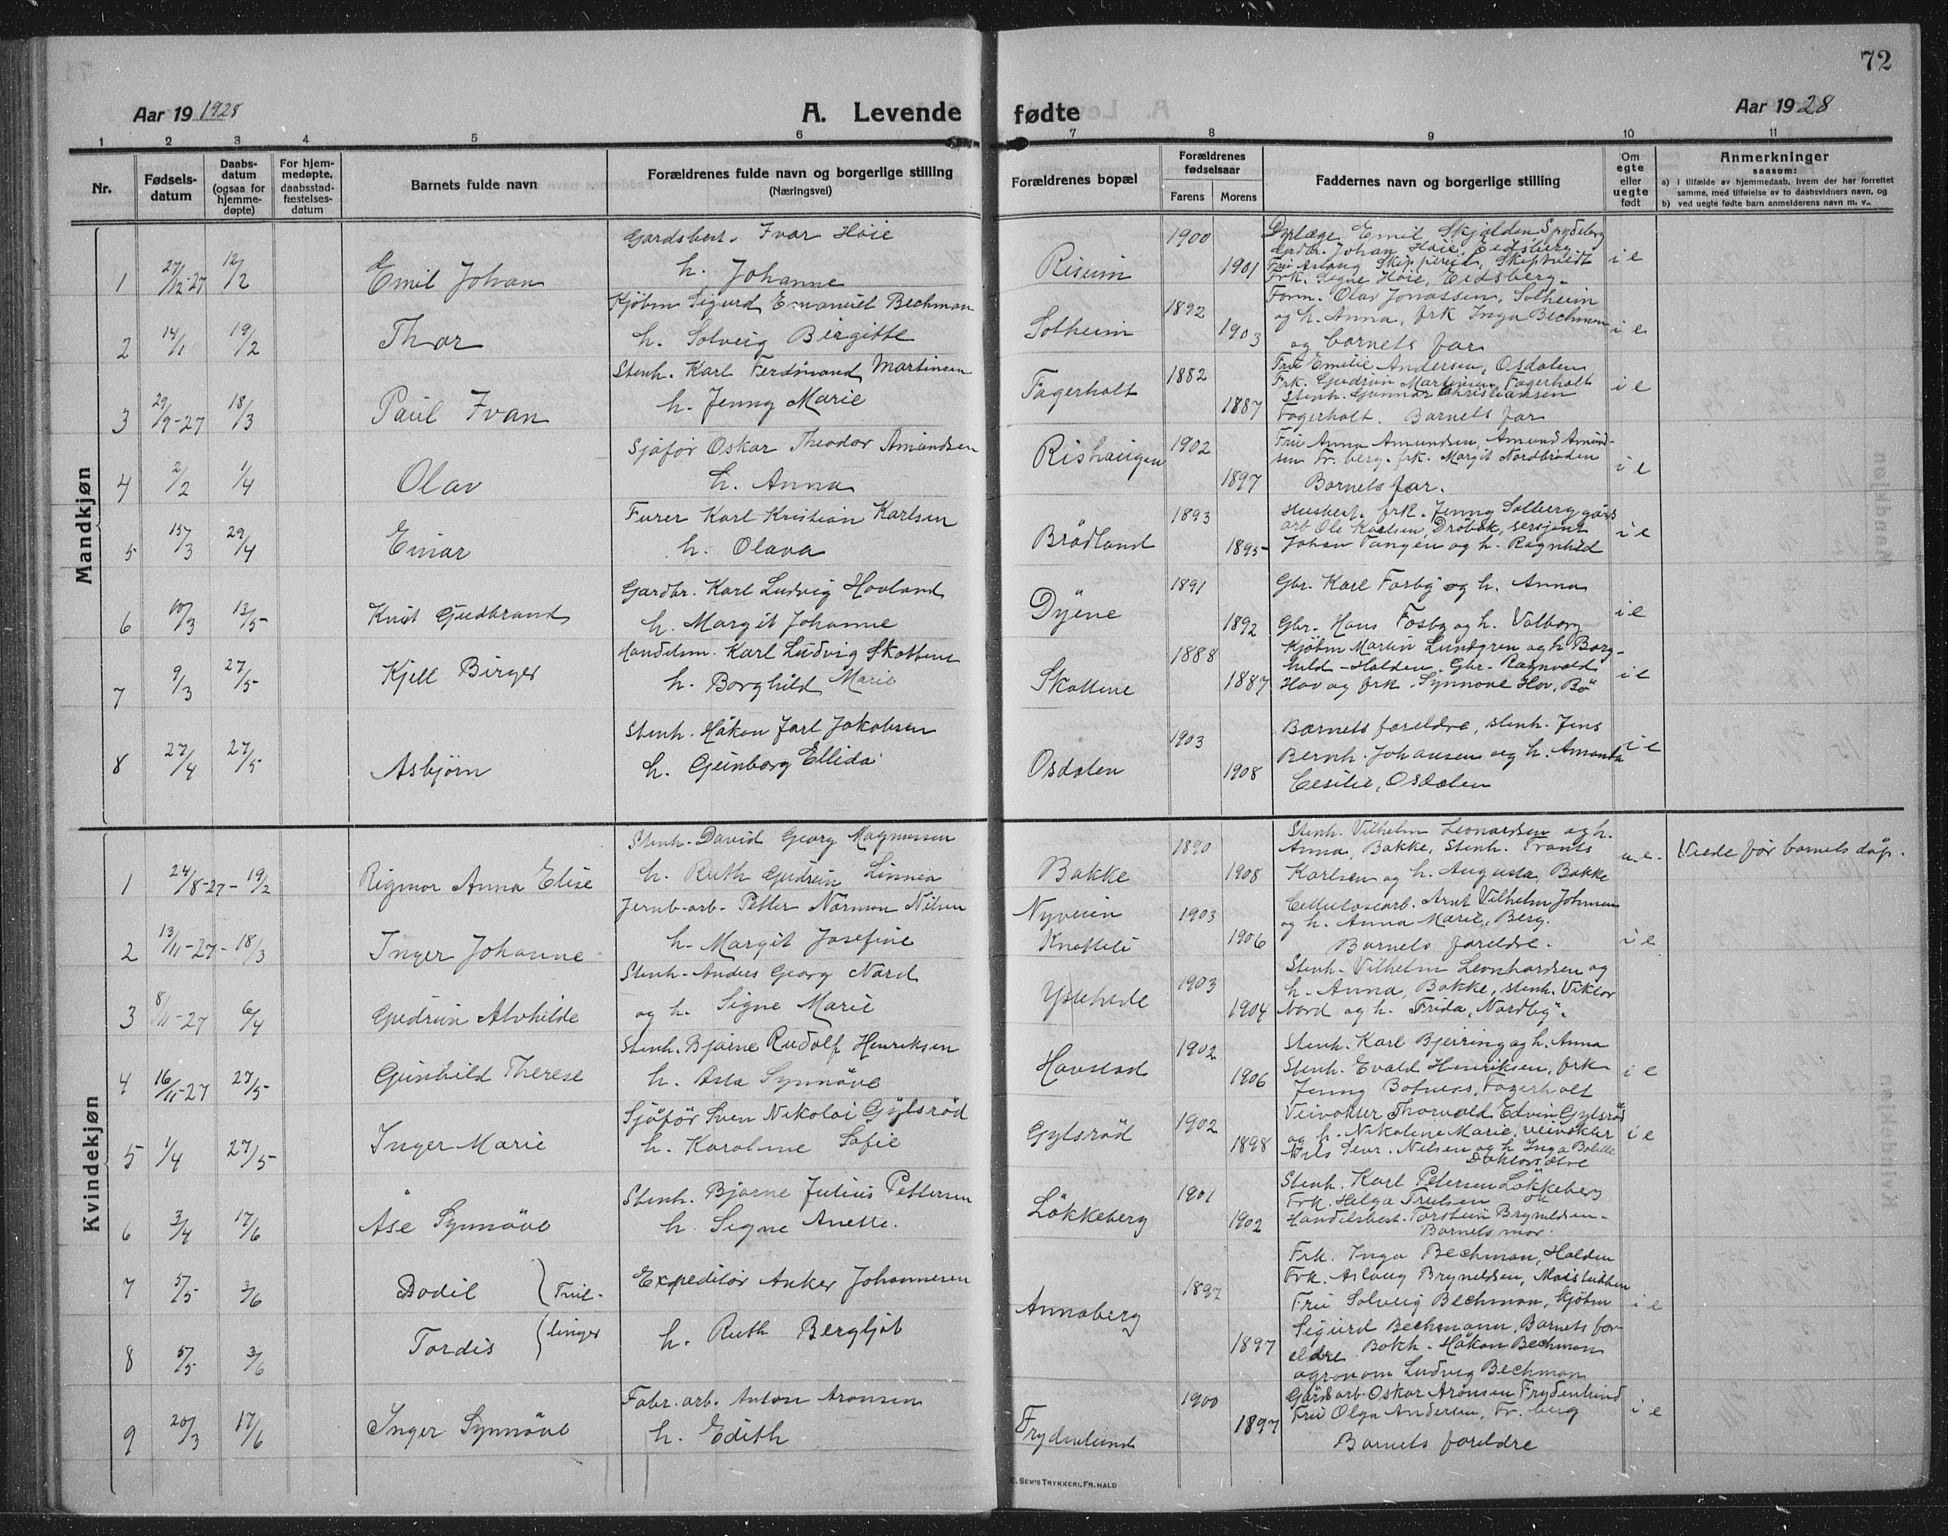 72
Aar 19 1928
A. Levende fødte
Aar 19 28
1 2 3 4 5 6 7 8 9 10 11
Nr.
Fødsels-
datum
Daabs-
datum
(ogsaa for
hjemme-
døpte)
For hjem-
medøpte,
daabsstad-
fæstelses-
datum
Barnets fulde navn
Forældrenes fulde navn og borgerlige stilling
(Næringsvei)
Forældrenes bopæl
Forældrenes
fødselsaar
Farens Morens
Faddernes navn og borgerlige stilling
Om
egte
eller
uegte
født
Anmerkninger
saasom:
a) i tilfælde av hjemmedaab, hvem der har forrettet
samme, med tilføielse av to daabsvidners navn, og
b) ved uegte fødte barn anmelderens navn m. v.
Mandkjøn
1 27/12-27 12/2 Emil Johan
Gardsbest. Ivar Høie
h. Johanne
Riseim 1900 1901
Dyrlæge Emil Skjolden Spydeberg
gardbr. Johan Høie, Eidsberg
Fru Aslaug Skipperud, Skiptvedt
Frk. Signe Høie, Eidsberg
i e
2 14/1 19/2 Thor
Kjøbm Sigurd Emanuel Bechman
h. Solveig Birgitte
Solheim 1892 1903
Form. Olav Jonassen, Solheim
og h. Anna, frk Inga Bechman
og barnets far
i e
3 29/9-27 18/3 Paul Ivan
Stenh. Karl Ferdinand Martinsen
h. Jenny Marie
Fagerholt 1882 1887
Fru Emilie Andersen, Osdalen
Frk. Gudrun Martinsen, Fagerholt
Stenh. Gunnar Christiansen
Fagerholt. Barnets far
i e
4 2/2 1/4 Olav
Sjåfør Oskar Theodor Amundsen
h. Anna
Rishaugen 1902 1897
Fru Anna Amundsen, Amund Amund-
sen Fr. berg. frk. Margit Nordbrøden
Barnets far.
i e
5 15/3 29/4 Einar
Furer Karl Kristian Karlsen
h. Olava
Brødland 1893 1895
Husbest. frk. Jenny Solberg gårds
arb Ole Karlsen, Drøbak, sersjent
Johan Tangen og h. Ragnhild
i e
6 10/3 13/5 Knut Gudbrand
Gardbr. Karl Ludvig Hovland
h. Margit Johanne
Dyene 1891 1892
Gbr. Karl Fosby og h. Anna
Gbr. Hans Fosby og h. Valborg
i e
7 9/3 27/5 Kjell Birger
Handelsm. Karl Ludvig Skottene
h. Borghild Marie
Skottene 1888 1887
Kjøbm Martin Lundgren og h Borg-
hild - Halden. Gbr. Ragnvald
Hov og frk. Synnøve Hov, Bø
i e
8 27/4 27/5 Asbjørn
Stenh. Håkon Jarl Jakobsen
h. Gunborg Ellida
Osdalen 1903 1908
Barnets foreldre, stenh. Jens
Bernh. Johansen og h. Amanda
Cesilie, Osdalen
i e
Kvindekjøn
1 24/8-27 - 19/2 Rigmor Anna Elise
Stenh. David Georg Magnussen
h. Ruth Gudrun Linnea
Bakke 1890 1908
Stenh. Vilhelm Leonardsen og h.
Anna, Bakke, Stenh. Frants
Karlsen og h. Augusta, Bakke
u.e. Viede før barnets dåp.
2 13/11-27 - 18/3 Inger Johanne
Jernb-arb. Petter Norman Nilsen
h. Margit Josefine
Nyveien
Knatteli 1903 1906
Cellulosearb. Arnt Vilhelm Johnsen
og h. Anna Marie, Berg.
Barnets foreldre.
i e
3 8/11-27 6/4 Gudrun Alvhilde
Stenh. Anders Georg Nord
og h. Signe Marie
Ystehede 1903 1904
Stenh. Vilhelm Leonhardsen og
h. Anna, Bakke, stenh. Viktor
Nord og h. Frida, "Nordby".
4 16/11-27 27/5 Gunhild Therese
Stenh. Bjarne Rudolf Henriksen
h. Asta Synnøve
Havstad 1902 1906
Stenh. Karl Bjerring og h. Anna
Stenh. Evald Henriksen, frk
Jenny Bofness, Fagerholt
i e
5 1/4 27/5 Inger Marie
Sjåfør Sven Nikolai Gylsrød
h. Karoline Sofie
Gylsrød 1902 1898
Veivokter Thorvald Edvin Gylsrød
og h. Nikoline Marie, veivokter
Nils Sevr. Nilsen og h Inga Bolette
i e
6 3/4 17/6 Åse Synnøve
Stenh. Bjarne Julius Pettersen
h. Signe Anette.
Løkkeberg 1901 1902
Stenh. Karl Petersen Løkkeberg
Frk. Helga Trulsen
Handelsbest. Torstein Bryneldsen.
Barnets mor.
7 5/5 3/6 Bodil
8 5/5 3/6 Tordis
Tvil-
linger
Expeditør Anker Johannesen
h. Ruth Bergljot
Annaberg 1897 1897
Frk. Inga Bechman, Halden
Frk. Aslaug Bryneldsen,
Fru Solveig Bechman, kjøbm
Sigurd Bechmann, Barnets for-
eldre. Bokh. Håkon Bechman
agronom Ludvig Bechman
i e
9 20/3 17/6 Inger Synnøve
Fabr. arb. Anton Aronsen
h. Edith
Frydenlund 1900 1897
Gårdsarb. Oskar Aronsen Frydenlund
Fru Olga Andersen, Fr. berg
Barnets foreldre
i e
E. SEM'S TRYKKERI, FR.HALD